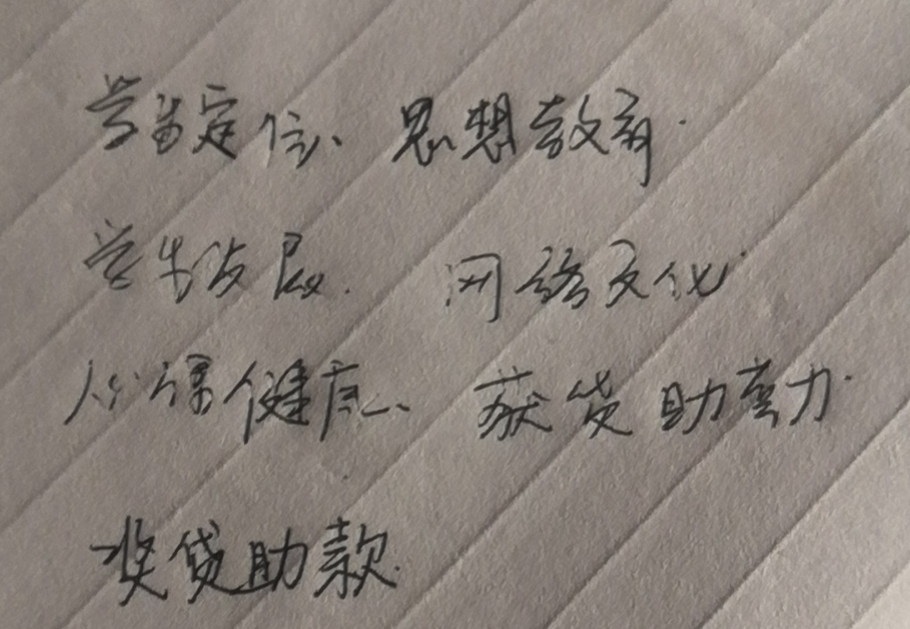 定位、思想教育.
学生发展. 网络文化
心理健康、 获贷助 力.
奖贷助款